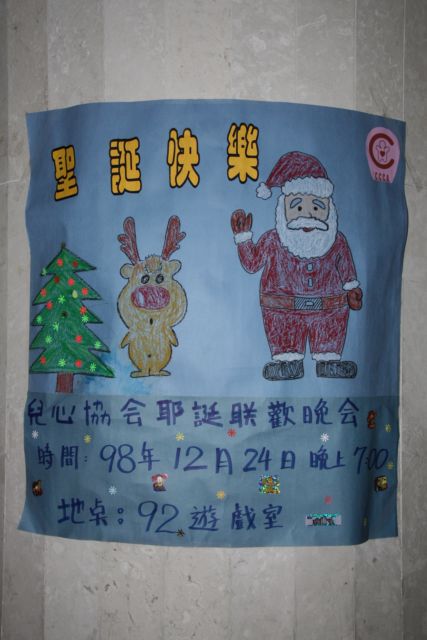 聖誕快樂
CCCA
兒心協会耶誕联歡晚会
時間：98年12月24日晚上7:00
地点：92遊戲室